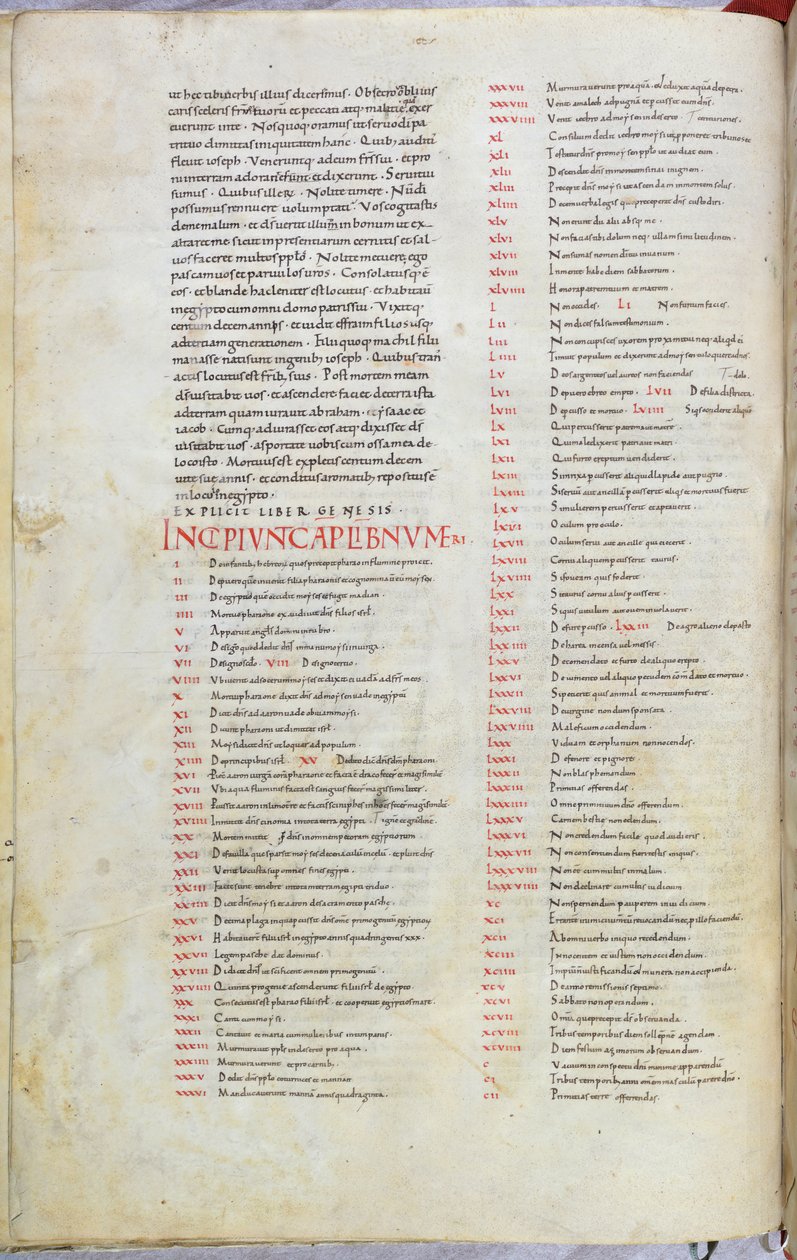 ut hec tibi uerbis illius diceremus . Obsecro ut obliuis
caris sceleris frm tuoru et peccati atq; malitie qua exer
euerunt in te . Nos quoq; oramus ut seruo di pa
tri tuo dimittas iniquitatem hanc . Quib; auditis
fleuit ioseph . Venerunt q; ad eum frs sui . et pro
ni in terram adorantes et dixerunt . Serui tui
sumus . Quibus ille . Nolite timere . Nu di
possumus rennuere uoluptati . Vos cogitastis
de me malum . et ds uertit illum in bonum ut ex
altaret me sicut in presentiarum cernitis et sal-
uos faceret multos pplos . Nolite metuere ego
pascam uos et paruulos uros . Consolatus q; e
eos . et blande hac leniter est locutus . et habitauit
in egypto cum omni domo patris sui . Vixit q;
centum decem annis . et uidit effraim filios usq;
ad tertiam generationem . Filii quoq; machil filii
manasse nati sunt in genib; ioseph . Quibus tran
actis locutus est frib; suis . Post mortem meam
ds uisitabit uos . et ascendere faciet de terra ista
ad terram quam iurauit abraham . ysaac et
iacob . Cumq; adiurasset eos atq; dixisset ds
uisitabit uos . asportate uobiscum ossa mea de
loco isto . Mortuus est expletis centum decem
uite sue annis . et conditus aromatib; repositus e
in loculo in egypto .
EXPLICIT LIBER GENESIS .
INCIPIVNT CAPL LIB NVMERI .
I De infantib; hebreoru quos precepit pharao in flumine proici .
II De puero que inuenit filia pharaonis et cognominauit eu moysen .
III De egyptio que occidit moyses et fugit madian .
IIII Mortuo pharaone exaudiuit dns filios isrl .
V Apparuit angls domini in rubo .
VI De signo quod dedit dns in manu moysi in uirga .
VII De signo scdo . VIII De signo tertio .
VIIII Vbi uenit ad socerum moyses et dixit ei uada ad frs meos .
X Mortuo pharaone dixit dns ad moysen uade in egyptu
XI Dicit dns ad aaron uade obuiam moysi .
XII Dicunt pharaoni ut dimittat isrl .
XIII Moysi dicit dns ut loquar ad populum .
XIIII De principibus isrl . XV
XVI
XVII Vbi aqua fluminis facta est sanguis fecer magi similiter .
XVIII
XVIIII
XX
XXI
XXII Venit locusta sup omnes fines egypti .
XXIII Facte sunt tenebre in tota terra egipti triduo .
XXIIII Dicit dns moysi et aaron de sacramento pasche .
XXV Decima plaga in qua percussit dns ome primogenitu egyptioru
XXVI Habitauer filii isrl in egypto annis quadringentis xxx .
XXVII Legem pasche dat dominus .
XXVIII Dicit dns ut scificent omnem primogenitu .
XXVIIII Quinta progenie ascenderunt filii isrl de egypto .
XXX Consecutus est pharao filii isrl . et cooperuit egyptios mare .
XXXI Canticum moysi .
XXXII Cantauit et maria cum mulieribus in timpanis .
XXXIII Murmurauit ppls in deserto pro aqua .
XXXIIII Murmurauerunt et pro carnib; .
XXXV Dedit dns pplo coturnices et manna .
XXXVI Manducauerunt manna annis quadraginta .
XXXVII Murmurauerunt pro aqua . et eduxit aqua de petra .
XXXVIII Venit amalech ad pugna et percussit eum dns .
XXXVIIII Venit iedhro ad moysen in deserto . centuriones .
XL Consilium dedit iedhro moysi ut pponeret tribunos et
XLI Testatur dns pro moysen pplo ut audiat eum .
XLII Descendit dns in montem sina in ignem .
XLIII Precepit dns moysi ut ascendam in montem solus .
XLIIII Decem uerba legis que preceperat dns custodiri .
XLV Non erunt dii alii absq; me .
XLVI Non facias tibi idolum neq; ullam similitudinem .
XLVII Non sumas nomen di tui in uanum .
XLVIII In mente habe diem sabbatorum .
XLVIIII Honora patrem tuum et matrem .
L Non occides . LI Non furtum facies .
LII Non dices falsum testimonium .
LIII Non concupisces uxorem proximi tui neq; aliqd ei
LIIII Timuit populum et dixerunt ad moysen tu loquere ad nos .
LV Deos argenteos uel aureos non faciendos
LVI De puero ebreo empto . LVII De filia districta .
LVIII De percusso et mortuo . LVIIII Si qs occiderit aliquem
LX Qui percusserit patrem aut matre .
LXI Qui maledixerit patri aut matri .
LXII Qui furto ereptum uendiderit .
LXIII Si in rixa percusserit aliqui lapide aut pugno .
LXIIII Si seruu aut ancilla percusserit aliqs et mortuus fuerit
LXV Si mulierem percusserit et aptauerit .
LXVI Oculum pro oculo .
LXVII Oculum serui aut ancille qui eiecerit .
LXVIII Cornu aliquem percusserit taurus .
LXVIIII Si foueam quis foderit .
LXX Si taurus cornu alius percusserit .
LXXI Si quis uitulum aut ouem inuolauerit .
LXXII De fure percusso . LXXIII De agro alieno depasto
LXXIIII De harea incensa uel messis .
LXXV De comendato et furto de aliquo erepto .
LXXVI De iumento uel aliquo pecudem comdato et mortuo .
LXXVII Si petierit quis animal et mortuum fuerit .
LXXVIII De uirgine nondum sponsata .
LXXVIIII Maleficum occidendum .
LXXX Viduam et orphanum non nocendos .
LXXXI De fenore et pignore
LXXXII Non blasphemandum
LXXXIII Primitias offerendas .
LXXXIIII Omne primitiuum dno offerendum .
LXXXV Carnem bestie non edendum .
LXXXVI Non credendum facile quod audieris .
LXXXVII Non consentiendum fuerit testis iniquus .
LXXXVIII Non ee cum multis in malum .
LXXXVIIII Non declinare cum multis iudicium
XC Non spernendum pauperem in iudicium .
XCI
XCII Ab omni uerbo iniquo recedendum .
XCIII Innocentem et iustum non occidendum .
XCIIII Impium n iustificandu et munera non accipienda .
XCV De anno remissionis septimo .
XCVI Sabbato non operandum .
XCVII Omnia que precepit ds obseruanda .
XCVIII Tribus temporibus diem sollepne agendam .
XCVIIII Diem festum azimorum obseruandum .
C Vacuum in conspectu dni minime apparendu
CI Tribus temporib; anni omnem masculu parere dno .
CII Primitias terre offerendas .